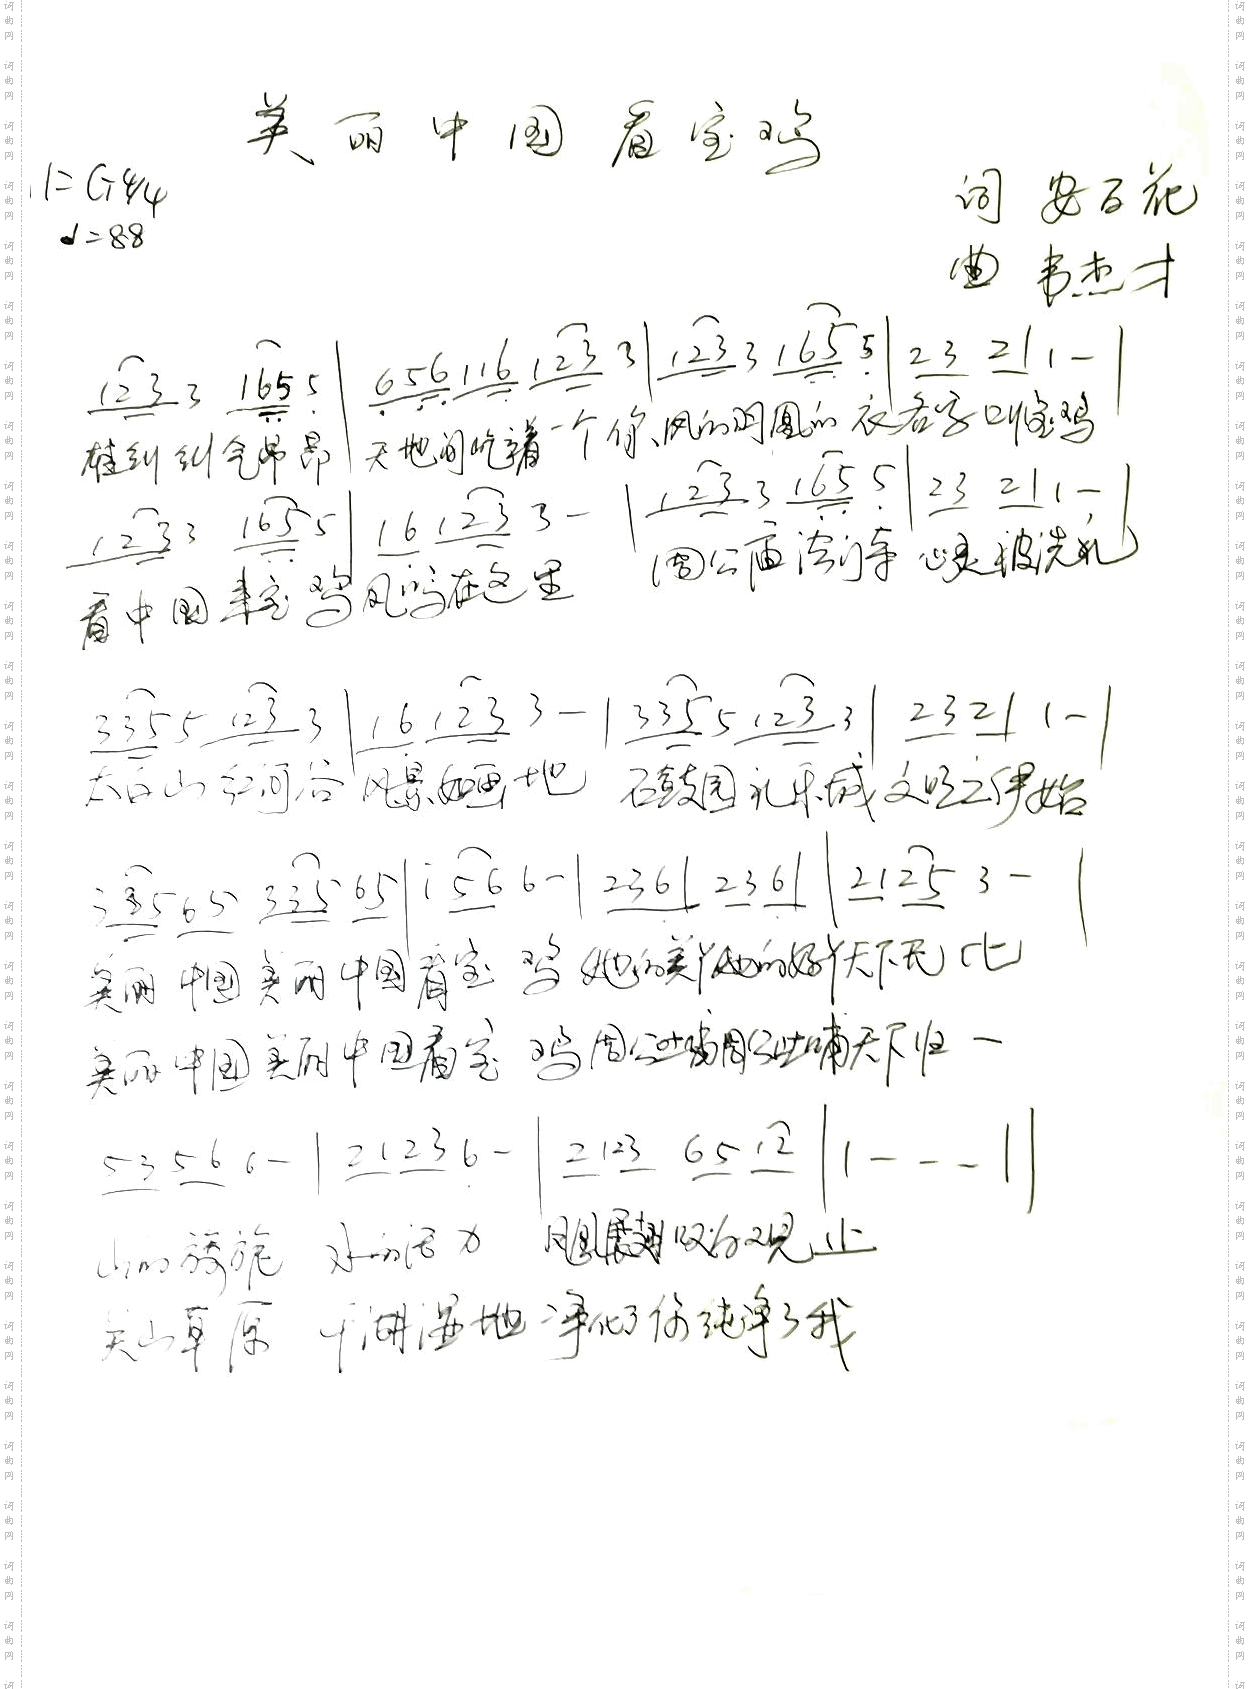 美丽中国看宝鸡
1=G 4/4
词 安百花
♩=88
曲 韦杰才
123 3 165 5 | 656 116 123 3 | 123 3 165 5 | 23 21 1 - |
雄纠纠气昂昂 天地间 着一个你 凤的 凰的衣名字叫宝鸡
123 3 165 5 | 16 123 3 - | 123 3 165 5 | 23 21 1 - |
看中国来宝鸡凤鸣在这里 周公庙法门寺心灵被洗礼
335 5 123 3 | 16 123 3 - | 335 5 123 3 | 23 21 1 - |
太白山红河谷 风景如画地 石鼓园礼乐城文明之伊始
335 65 335 65 | i 56 6 - | 236 1 236 1 | 21 25 3 - |
美丽中国美丽中国看宝鸡她的美丫她的好丫天下无比
美丽中国美丽中国看宝鸡周公吐哺周公吐哺天下归一
53 56 6 - | 21 23 6 - | 2 123 65 12 | 1 - - - ||
山的旖旎 水的活力 凤凰展翅叹为观止
关山草原 千湖湿地 净化了你纯净了我